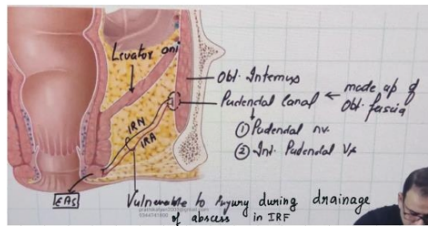 Levator ani
Obt. Internus
Pudendal Canal ← made up of
Obt. fascia
① Pudendal nv.
② Int. Pudendal V/s
IRN
IRA
EAS
Vulnerable to Injury during drainage
of abscess in IRF